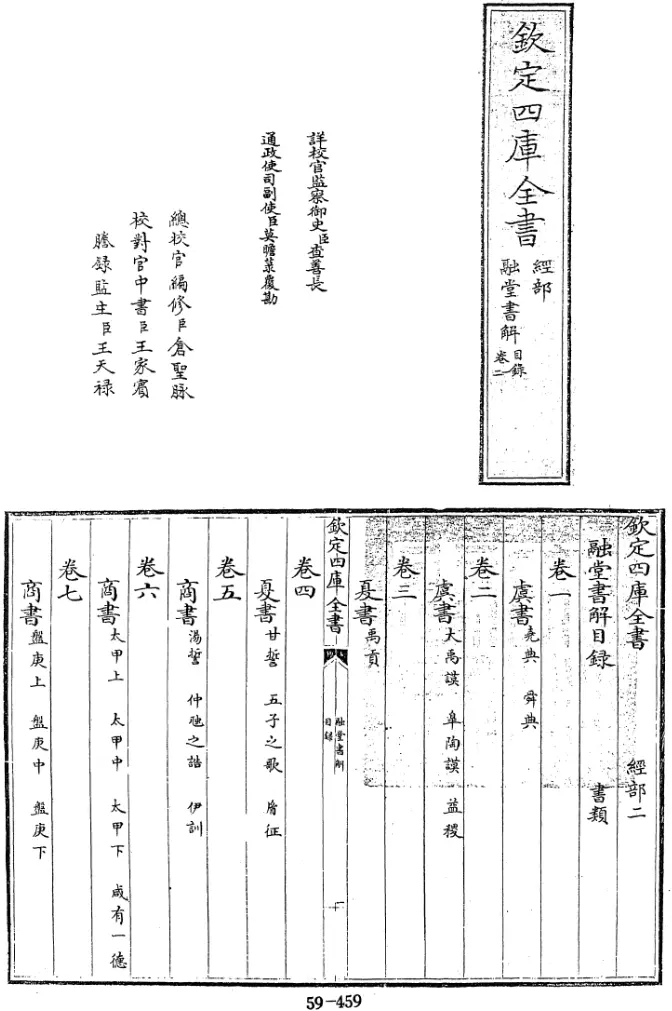 欽定四庫全書
經部
融堂書解
目錄
卷一二
詳校官監察御史臣查善長
通政使司副使臣莫瞻菉覆勘
總校官編修臣倉聖脉
校對官中書臣王家賓
謄錄監生臣王天禄
欽定四庫全書 經部二
融堂書解目錄 書類
卷一
虞書堯典 舜典
卷二
虞書大禹謨 皐陶謨 益稷
卷三
夏書禹貢
欽定四庫全書
融堂書解
目錄
卷四
夏書甘誓 五子之歌 𦙍征
卷五
商書湯誓 仲虺之誥 伊訓
卷六
商書太甲上 太甲中 太甲下 咸有一德
卷七
商書盤庚上 盤庚中 盤庚下
59-459